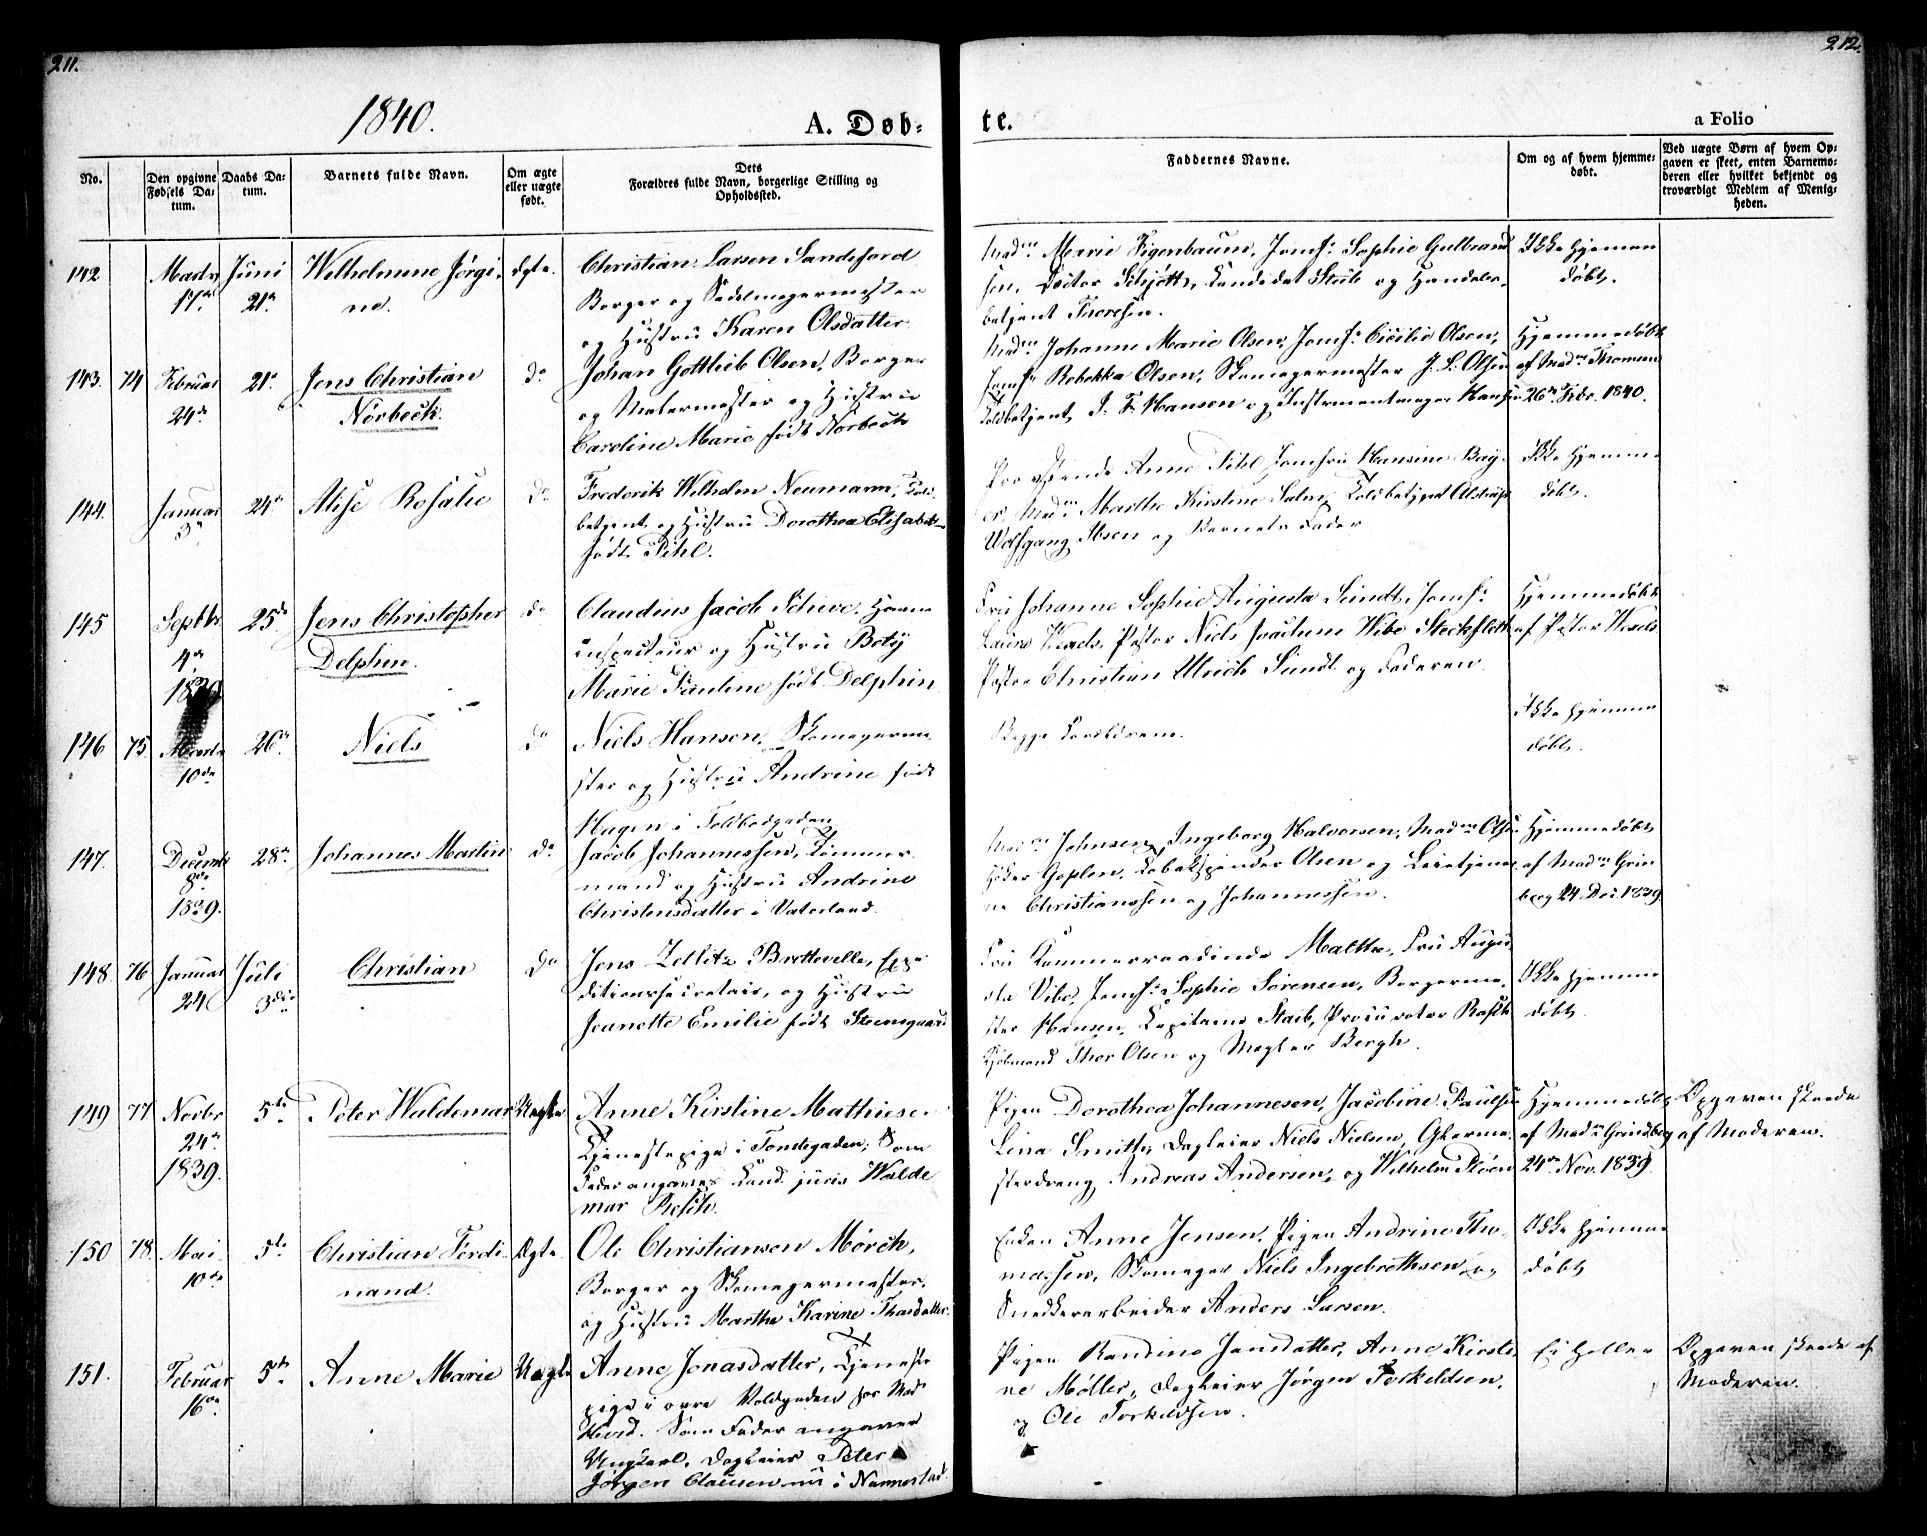 211.
212.
1840.
A. Døb-
te.
a Folio
No.
Den opgivne Fødsels Da-tum.
Daabs Da-tum.
Barnets fulde Navn.
Om ægte eller uægte født.
Dets Forældres fulde Navn, borgerlige Stilling og Opholdssted.
Faddernes Navne.
Om og af hvem hjemme-døbt.
Ved uægte Børn af hvem Op-gaven er skeet, enten Barnemo-deren eller hvilket bekjendt og troværdigt Medlem af Menig-heden.
142
Marts 17de
Juni 21de
Wilhelmine Jørgi-
ne.
Ægte
Christian Larsen Sandefjord
Borger og Sadelmagermester
og Hustru Karen Olsdatter
Madm Marie Figenbaum, Jomfr Sophie Gulbrand
sen, Doctor Schjøtt, Candidat Steib og Handels-
betjent Thoresen.
Ikke hjemme
døbt.
143. 74
Februar 24de
21de
Jens Christian
Nørbeck.
Do
Johan Gottlieb Olsen, Borger
og Malermester og Hustru
Caroline Marie født Nørbech
Madm Johanne Marie Olsen, Jomfr Cicilie Olsen,
Jomfr Rebekka Olsen, Skomagermester J. L. Olsen
Toldbetjent J. F. Hansen og Instrumentmager Hansen
Hjemmedøbt
af Madm Thomsen
26de Febr. 1840.
144.
Januar
24de
Alise Rosalie
Do
Frederik Wilhelm Neumann, Told-
betjent og Hustru Dorothea Elisabeth
født Pihl.
Provstinde Anne Pihl, Jomfru Hansine Bay-
er, Madm Marthe Kirstine Salm, Toldbetjent Alstrup
Wolfgang Ibsen og Barnets Fader
Ikke hjemme
døbt.
145
Septbr 4de 1839
25de
Jens Christopher
Delphin.
Do
Claudius Jacob Schive, Havne
inspecteur og Hustru Boty
Marie Pauline født Delphin
Fru Johanne Sophie Augusta Sundt, Jomfr
Laura Wexels, Pastor Niels Joachim Wibe Stockfleth
Pastor Christian Ulrich Sundt og Faderen.
Hjemmedøbt
af Pastor Wexels
146 75
Marts 10de
26de
Niels
Do
Niels Hansen, Skomagerme-
ster og Hustru Andrine født
Hagen i Toldbodgaden
Begge Forældrene.
Ikke hjemme
døbt.
147.
Decembr 8de 1839.
28de
Johannes Martin
Do
Jacob Johannessen, Tømmer-
mand og Hustru Andrine
Christensdatter i Vaterland.
Madm Johnsen, Ingeborg Halvorsen, Madm Olsen
Høker Goplen, Tobakspinder Olsen og Leietjene-
re Christianssen og Johannessen.
Hjemmedøbt
af Madm Grin
berg 24 Dec. 1839.
148 76
Januar 24
Juli 3die
Christian
Do
Jens Zetlitz Bretteville, Expe
ditionssecretair, og Hustru
Jeanette Emilie født Steensgaard
Fru Kammerraadinde Malthe, Fru Augu
sta Vibe, Jomfr Sophie Sørensen, Borgerme-
ster Hansen, Capitaine Staib, Procurator Rasch
Kjøbmand Thor Olsen og Mægler Bergh.
Ikke hjemme
døbt.
149 77
Novbr 24de 1839.
5te
Peter Waldemar
Uægte
Anne Kirstine Mathiesen
Tjenestepige i Tordegaden, Som
Fader angaves Cand. juris Walde
mar Resch.
Pigen Dorothea Johannesen, Jacobine Paulsen
Lina Smith, Dagleier Niels Nielsen, Glarme-
sterdreng Andreas Andersen, og Wilhelm Pløen
Hjemmedøbt
af Madm Grindberg
24de Nov. 1839.
Opgaven skeede
af Moderen.
150 78.
Mai 10de
5te
Christian Ferdi-
nand.
Ægte
Ole Christiansen Mørch,
Borger og Skomagermester,
og Hustru Marthe Karine Thorsdatter
Enken Anne Jensen, Pigen Andrine Tho-
massen, Skomager Niels Ingebrethsen og
Snedkerarbeider Anders Larsen.
Ikke hjemme
døbt
151.
Februar 16de
5te
Anne Marie
Uægte
Anne Jonasdatter, Tjeneste
pige i øvre Voldgaden hos Mad
Hvid. Som Fader angaves
Ungkarl, Dagleier Peter
Jørgen Clausen nu i Nannestad
Pigen Randine Jansdatter, Anne Kirsti-
ne Møller, Dagleier Jørgen Torkeldsen,
og Ole Torkeldsen.
Ei heller
Opgaven skeede af
Moderen.